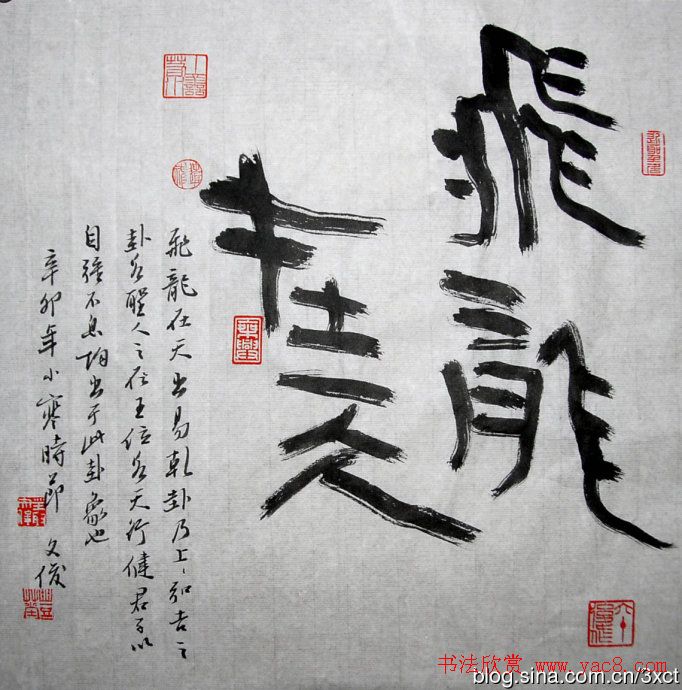 飛龍
在天
飛龍在天出易乾卦乃上上弘吉之
卦名聖人之在王位名天行健君子以
自强不息均出于此卦象也
辛卯年小寒時節 文俊
书法欣赏 www.yac8.com
blog.sina.com.cn/3xct